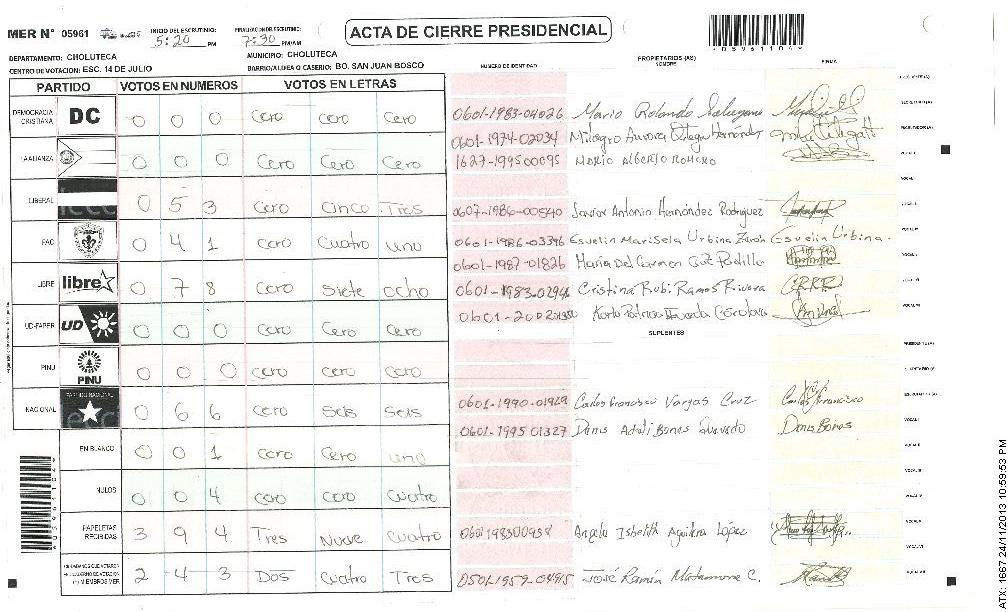 MER N° 05961
INICIO DEL ESCRUTINIO: 5:20 PM
FINALIZACION DE ESCRUTINIO: 7:30 PM/AM
ACTA DE CIERRE PRESIDENCIAL
DEPARTAMENTO: CHOLUTECA
MUNICIPIO: CHOLUTECA
CENTRO DE VOTACION: ESC. 14 DE JULIO
BARRIO/ALDEA O CASERIO: BO. SAN JUAN BOSCO
NUMERO DE IDENTIDAD
PROPIETARIOS (AS)
NOMBRE
FIRMA
PARTIDO VOTOS EN NUMEROS VOTOS EN LETRAS
DEMOCRACIA CRISTIANA DC 0 0 0 Cero Cero Cero
LA ALIANZA 0 0 0 Cero Cero Cero
LIBERAL 0 5 3 Cero Cinco Tres
PAC 0 4 1 Cero Cuatro uno
LIBRE libre 0 7 8 Cero Siete ocho
UD-FAPER UD 0 0 0 Cero Cero Cero
PINU PINU 0 0 0 Cero Cero Cero
NACIONAL PARTIDO NACIONAL 0 6 6 Cero Seis Seis
EN BLANCO 0 0 1 Cero Cero uno
NULOS 0 0 4 Cero Cero Cuatro
PAPELETAS RECIBIDAS 3 9 4 Tres Nueve Cuatro
CIUDADANOS QUE VOTARON 2 4 3 Dos Cuatro Tres
0601-1983-04026 Mario Rolando
0601-1974-02034 Milagro Aurora Ortega Hernández
1627-199500095 MARIO ALBERTO ROMERO
0607-1986-00540 Javier Antonio Hernández Rodriguez
0601-1986-03396 Esvelin Marisela Urbina Esvelin Urbina.
0601-1987-01826 Maria Del Carmen Padilla
0601-1983-0294 Cristina Rubi Ramos Rivera
Karla Patricia Cordova
SUPLENTES
0601-1990-01929 Carlos Francisco Vargas Cruz Carlos Francisco
0601-1995 01327 Denis Bones Quevedo Denis Bones
0601 198300958 Angela Isbelith Aguilera López
0501-1959-04915 José Ramón Matamoros C.
ATX: 1667 24/11/2013 10:59:53 PM